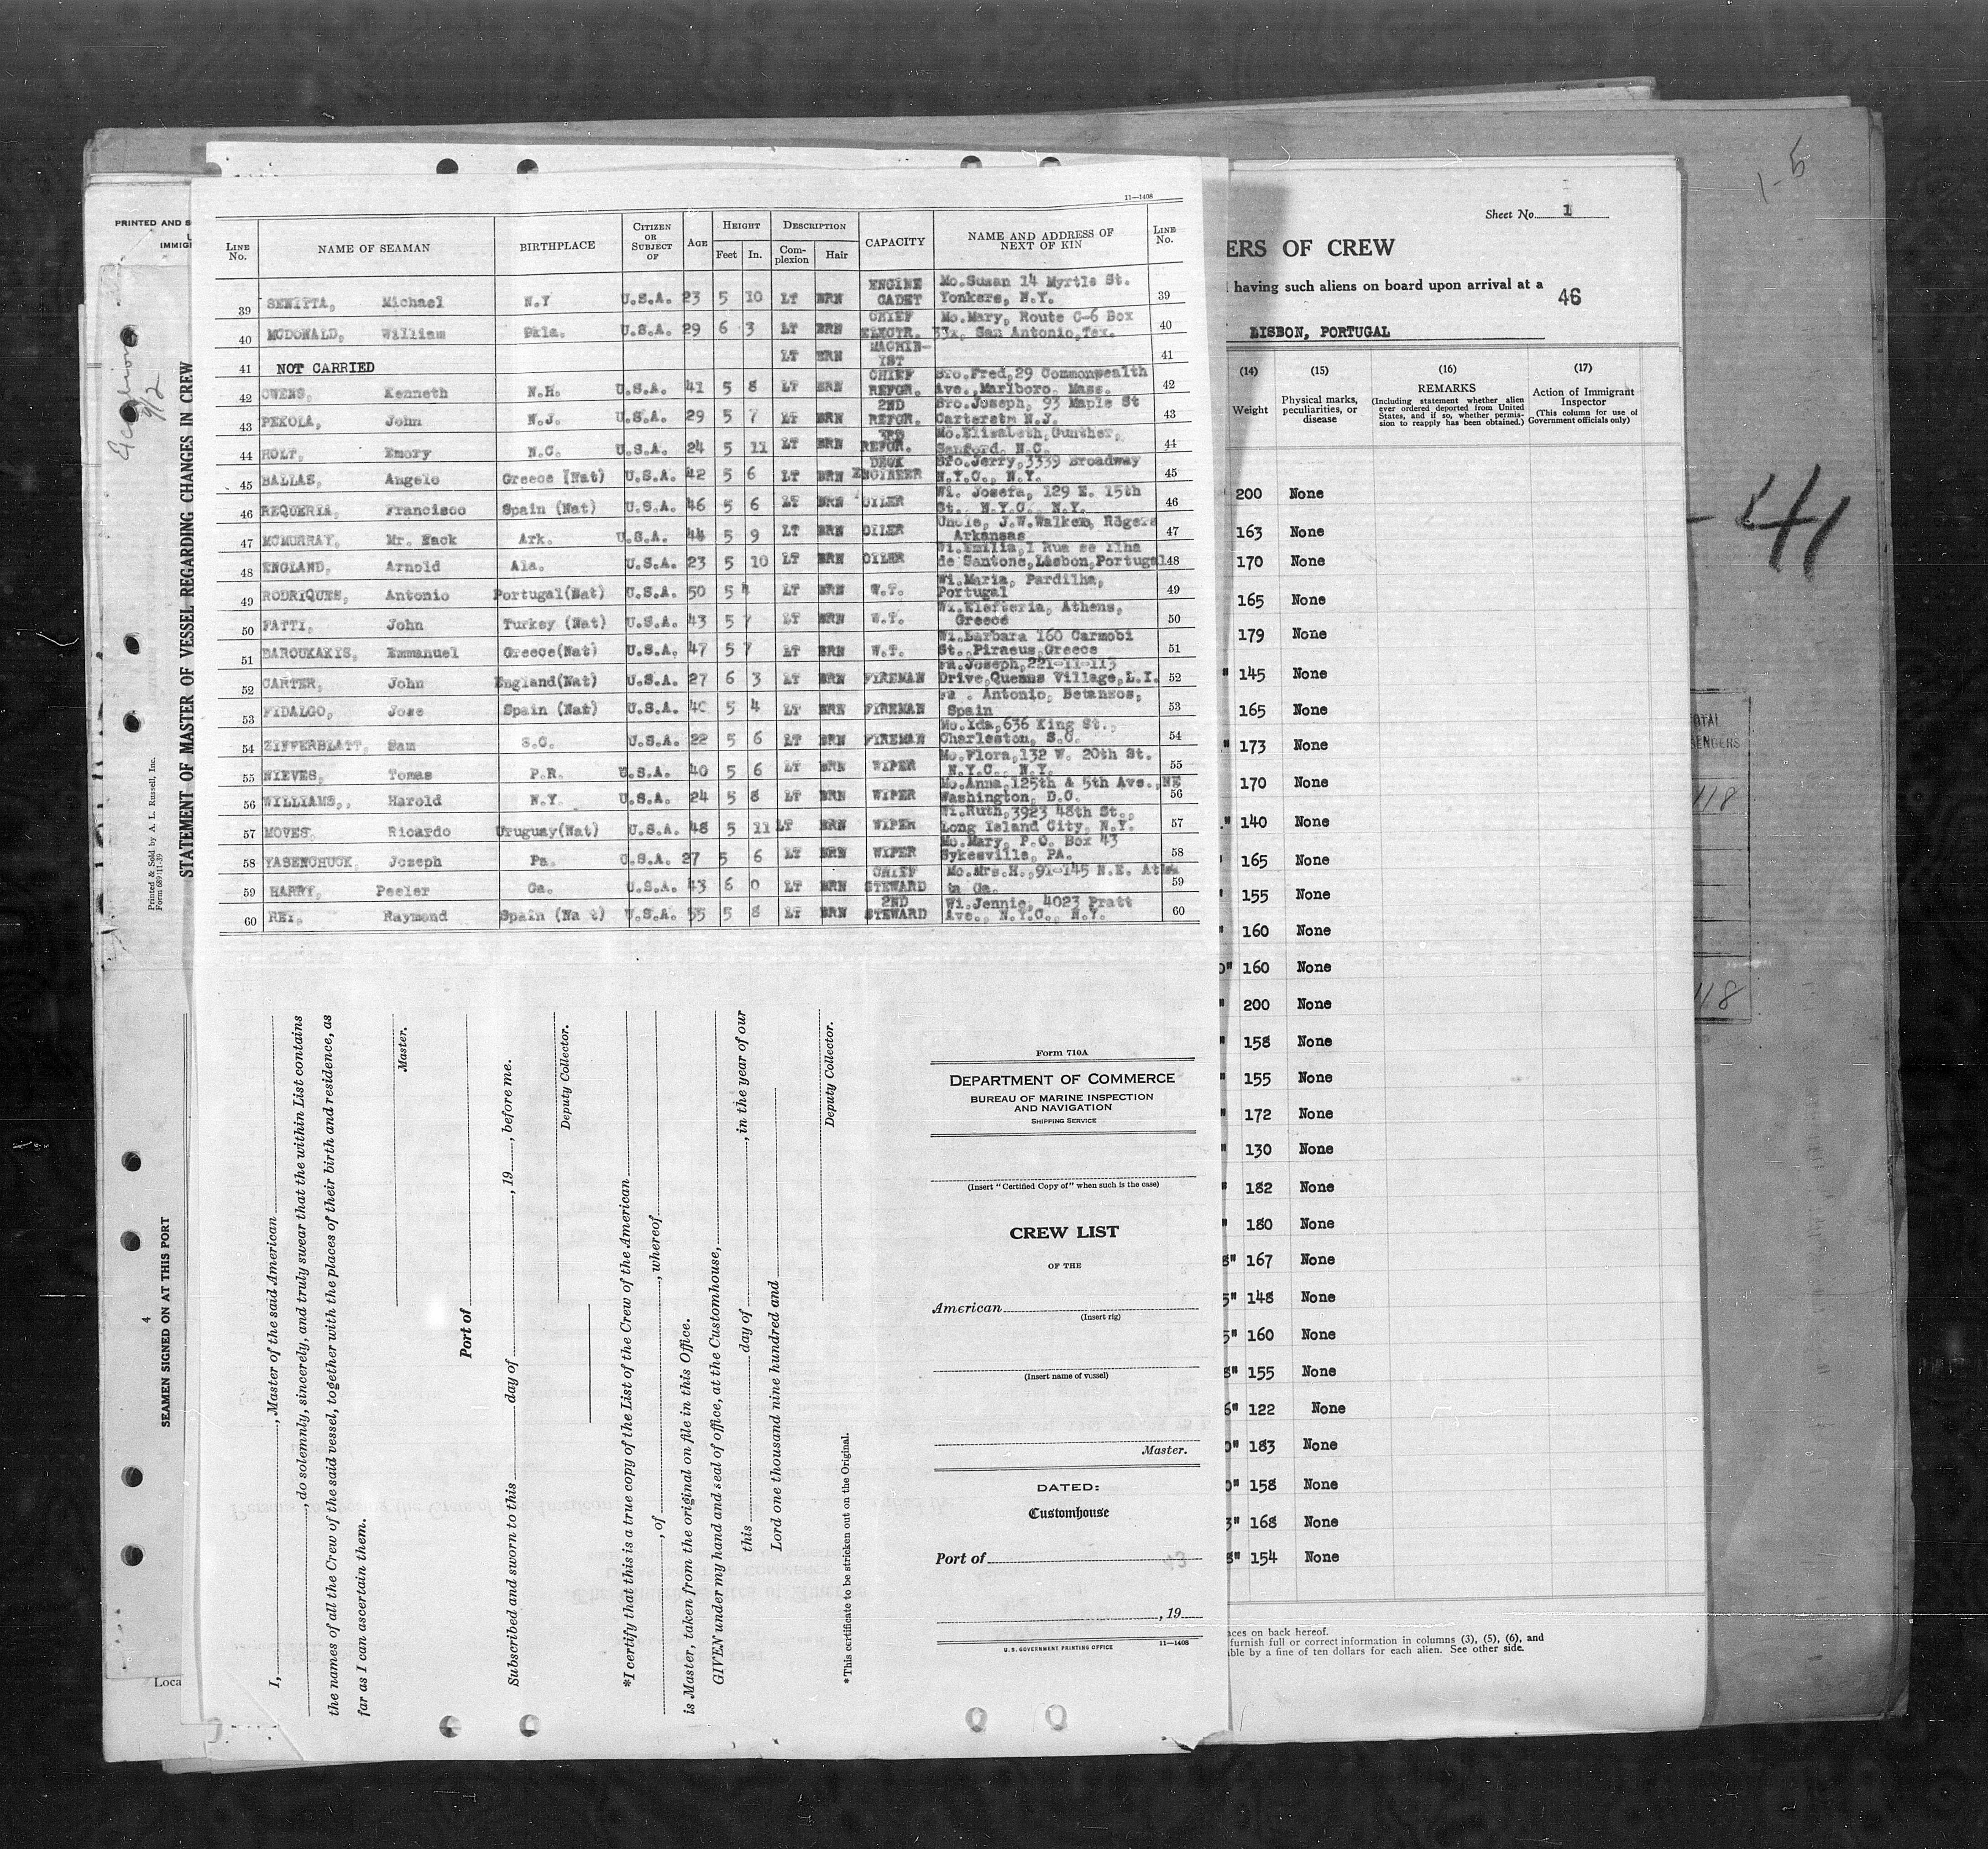 11—1408
LINE No. NAME OF SEAMAN BIRTHPLACE CITIZEN OR SUBJECT OF AGE HEIGHT Feet In. DESCRIPTION Complexion Hair CAPACITY NAME AND ADDRESS OF NEXT OF KIN LINE No.
39 SENIPTA, Michael N.Y U.S.A. 23 5 10 LT BRN ENGINE CADET Mo.Susan 14 Myrtle St. Yonkers, N.Y. 39
40 MCDONALD, William U.S.A. 29 6 3 LT BRN CHIEF ELECTR. Mo.Mary, Route C-6 Box 33x, San Antonio,Tex. 40
41 NOT CARRIED LT BRN MACHIN-IST 41
42 OWENS, Kenneth N.H. U.S.A. 41 5 8 LT BRN CHIEF REFGR. Bro.Fred,29 Commonwealth Ave.,Marlboro, Mass. 42
43 PEKOLA, John N.J. U.S.A. 29 5 7 LT BRN 2ND REFGR. Bro.Joseph, 93 Maple St Carteretm N.J. 43
44 HOLT, Emory N.C. U.S.A. 24 5 11 LT BRN 3RD REFGR. Mo.Elizabeth,Gunther, Sanford, N.C. 44
45 BALLAS, Angelo Greece (Nat) U.S.A. 42 5 6 LT BRN DECK ENGINEER Bro.Jerry,3339 Broadway N.Y.C., N.Y. 45
46 REQUERIA, Francisco Spain (Nat) U.S.A. 46 5 6 LT BRN OILER Wi. Josefa, 129 E. 15th St., N.Y.C., N.Y. 46
47 MCMURRAY, Mr. Zack Ark. U.S.A. 44 5 9 LT BRN OILER Uncle, J.W.Walker, Rogers Arkansas 47
48 ENGLAND, Arnold Ala. U.S.A. 23 5 10 LT BRN OILER Wi.Emilia,1 Rua se Ilha de Santone,Lisbon,Portugal 48
49 RODRIQUES, Antonio Portugal(Nat) U.S.A. 50 5 4 LT BRN W.T. Wi.Maria, Pardilha, Portugal 49
50 FATTI, John Turkey (Nat) U.S.A. 43 5 7 LT BRN W.T. Wi.Elefteria, Athens, Greece 50
51 BAROUKAKIS, Emmanuel Greece(Nat) U.S.A. 47 5 7 LT BRN W.T. Wi.Barbara 160 Carmobi St., Piraeus,Greece 51
52 CARTER, John England(Nat) U.S.A. 27 6 3 LT BRN FIREMAN Fa.Joseph,221-11-113 Drive,Queens Village,L.I. 52
53 FIDALGO, Jose Spain (Nat) U.S.A. 40 5 4 LT BRN FIREMAN Fa . Antonio, Betanzos, Spain 53
54 ZIFFERBLATT, Sam S.C. U.S.A. 22 5 6 LT BRN FIREMAN Mo.Ida,636 King St., Charleston, S.C. 54
55 NIEVES, Tomas P.R. U.S.A. 40 5 6 LT BRN WIPER Mo.Flora,132 W. 20th St. N.Y.C., N.Y. 55
56 WILLIAMS,, Harold N.Y. U.S.A. 24 5 8 LT BRN WIPER Mo.Anna,125th & 5th Ave.,NE Washington, D.C. 56
57 MOVES, Ricardo Uruguay(Nat) U.S.A. 48 5 11 LT BRN WIPER Wi.Ruth,3923 48th St., Long Island City, N.Y. 57
58 YASENCHUCK, Joseph Pa. U.S.A. 27 5 6 LT BRN WIPER Mo.Mary, P.O. Box 43 Sykesville, PA. 58
59 HARRY, Peeler Ga. U.S.A. 43 6 0 LT BRN CHIEF STEWARD Mo.Mrs.H.,91-145 N.E. ta Ga. 59
60 REY, Raymond Spain (Na t) U.S.A. 55 5 8 LT BRN 2ND STEWARD Wi.Jennie, 4023 Pratt Ave., N.Y.C., N.Y. 60
I, , Master of the said American
, do solemnly, sincerely, and truly swear that the within List contains
the names of all the Crew of the said vessel, together with the places of their birth and residence, as
far as I can ascertain them.
Master.
Port of
Subscribed and sworn to this day of , 19 , before me.
Deputy Collector.
*I certify that this is a true copy of the List of the Crew of the American
, of , whereof
is Master, taken from the original on file in this Office.
GIVEN under my hand and seal of office, at the Customhouse,
this day of , in the year of our
Lord one thousand nine hundred and
Deputy Collector.
*This certificate to be stricken out on the Original.
Form 710A
DEPARTMENT OF COMMERCE
BUREAU OF MARINE INSPECTION
AND NAVIGATION
SHIPPING SERVICE
(Insert "Certified Copy of" when such is the case)
CREW LIST
OF THE
American
(Insert rig)
(Insert name of vessel)
Master.
DATED:
Customhouse
Port of
, 19
U. S. GOVERNMENT PRINTING OFFICE 11—1408
PRINTED AND S
IMMIG
9/2
STATEMENT OF MASTER OF VESSEL REGARDING CHANGES IN CREW
Printed & Sold by A. L. Russell, Inc.
Form 689 I 11-39
4
SEAMEN SIGNED ON AT THIS PORT
Loca
Sheet No. 1
ERS OF CREW
having such aliens on board upon arrival at a
46
LISBON, PORTUGAL
(14) (15) (16) (17)
Weight
Physical marks, peculiarities, or disease
REMARKS
(Including statement whether alien ever ordered deported from United States, and if so, whether permission to reapply has been obtained.)
Action of Immigrant Inspector
(This column for use of Government officials only)
200 None
163 None
170 None
165 None
179 None
" 145 None
165 None
" 173 None
170 None
" 140 None
165 None
155 None
" 160 None
0" 160 None
" 200 None
" 158 None
" 155 None
" 172 None
" 130 None
" 182 None
" 180 None
8" 167 None
5" 148 None
5" 160 None
8" 155 None
6" 122 None
0" 183 None
0" 158 None
3" 168 None
8" 154 None
aces on back hereof.
furnish full or correct information in columns (3), (5), (6), and
able by a fine of ten dollars for each alien. See other side.
1-5
- 41
OTAL
ENGERS
118
118